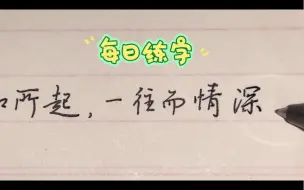 每日练字
所起，一往而情深